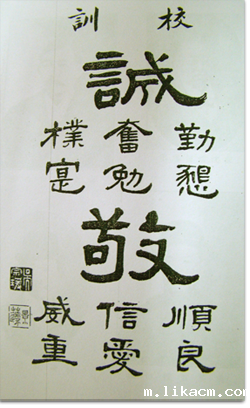 校訓
誠
勤懇
奮勉
樸寔
敬
順良
信愛
威重
m.likacm.com